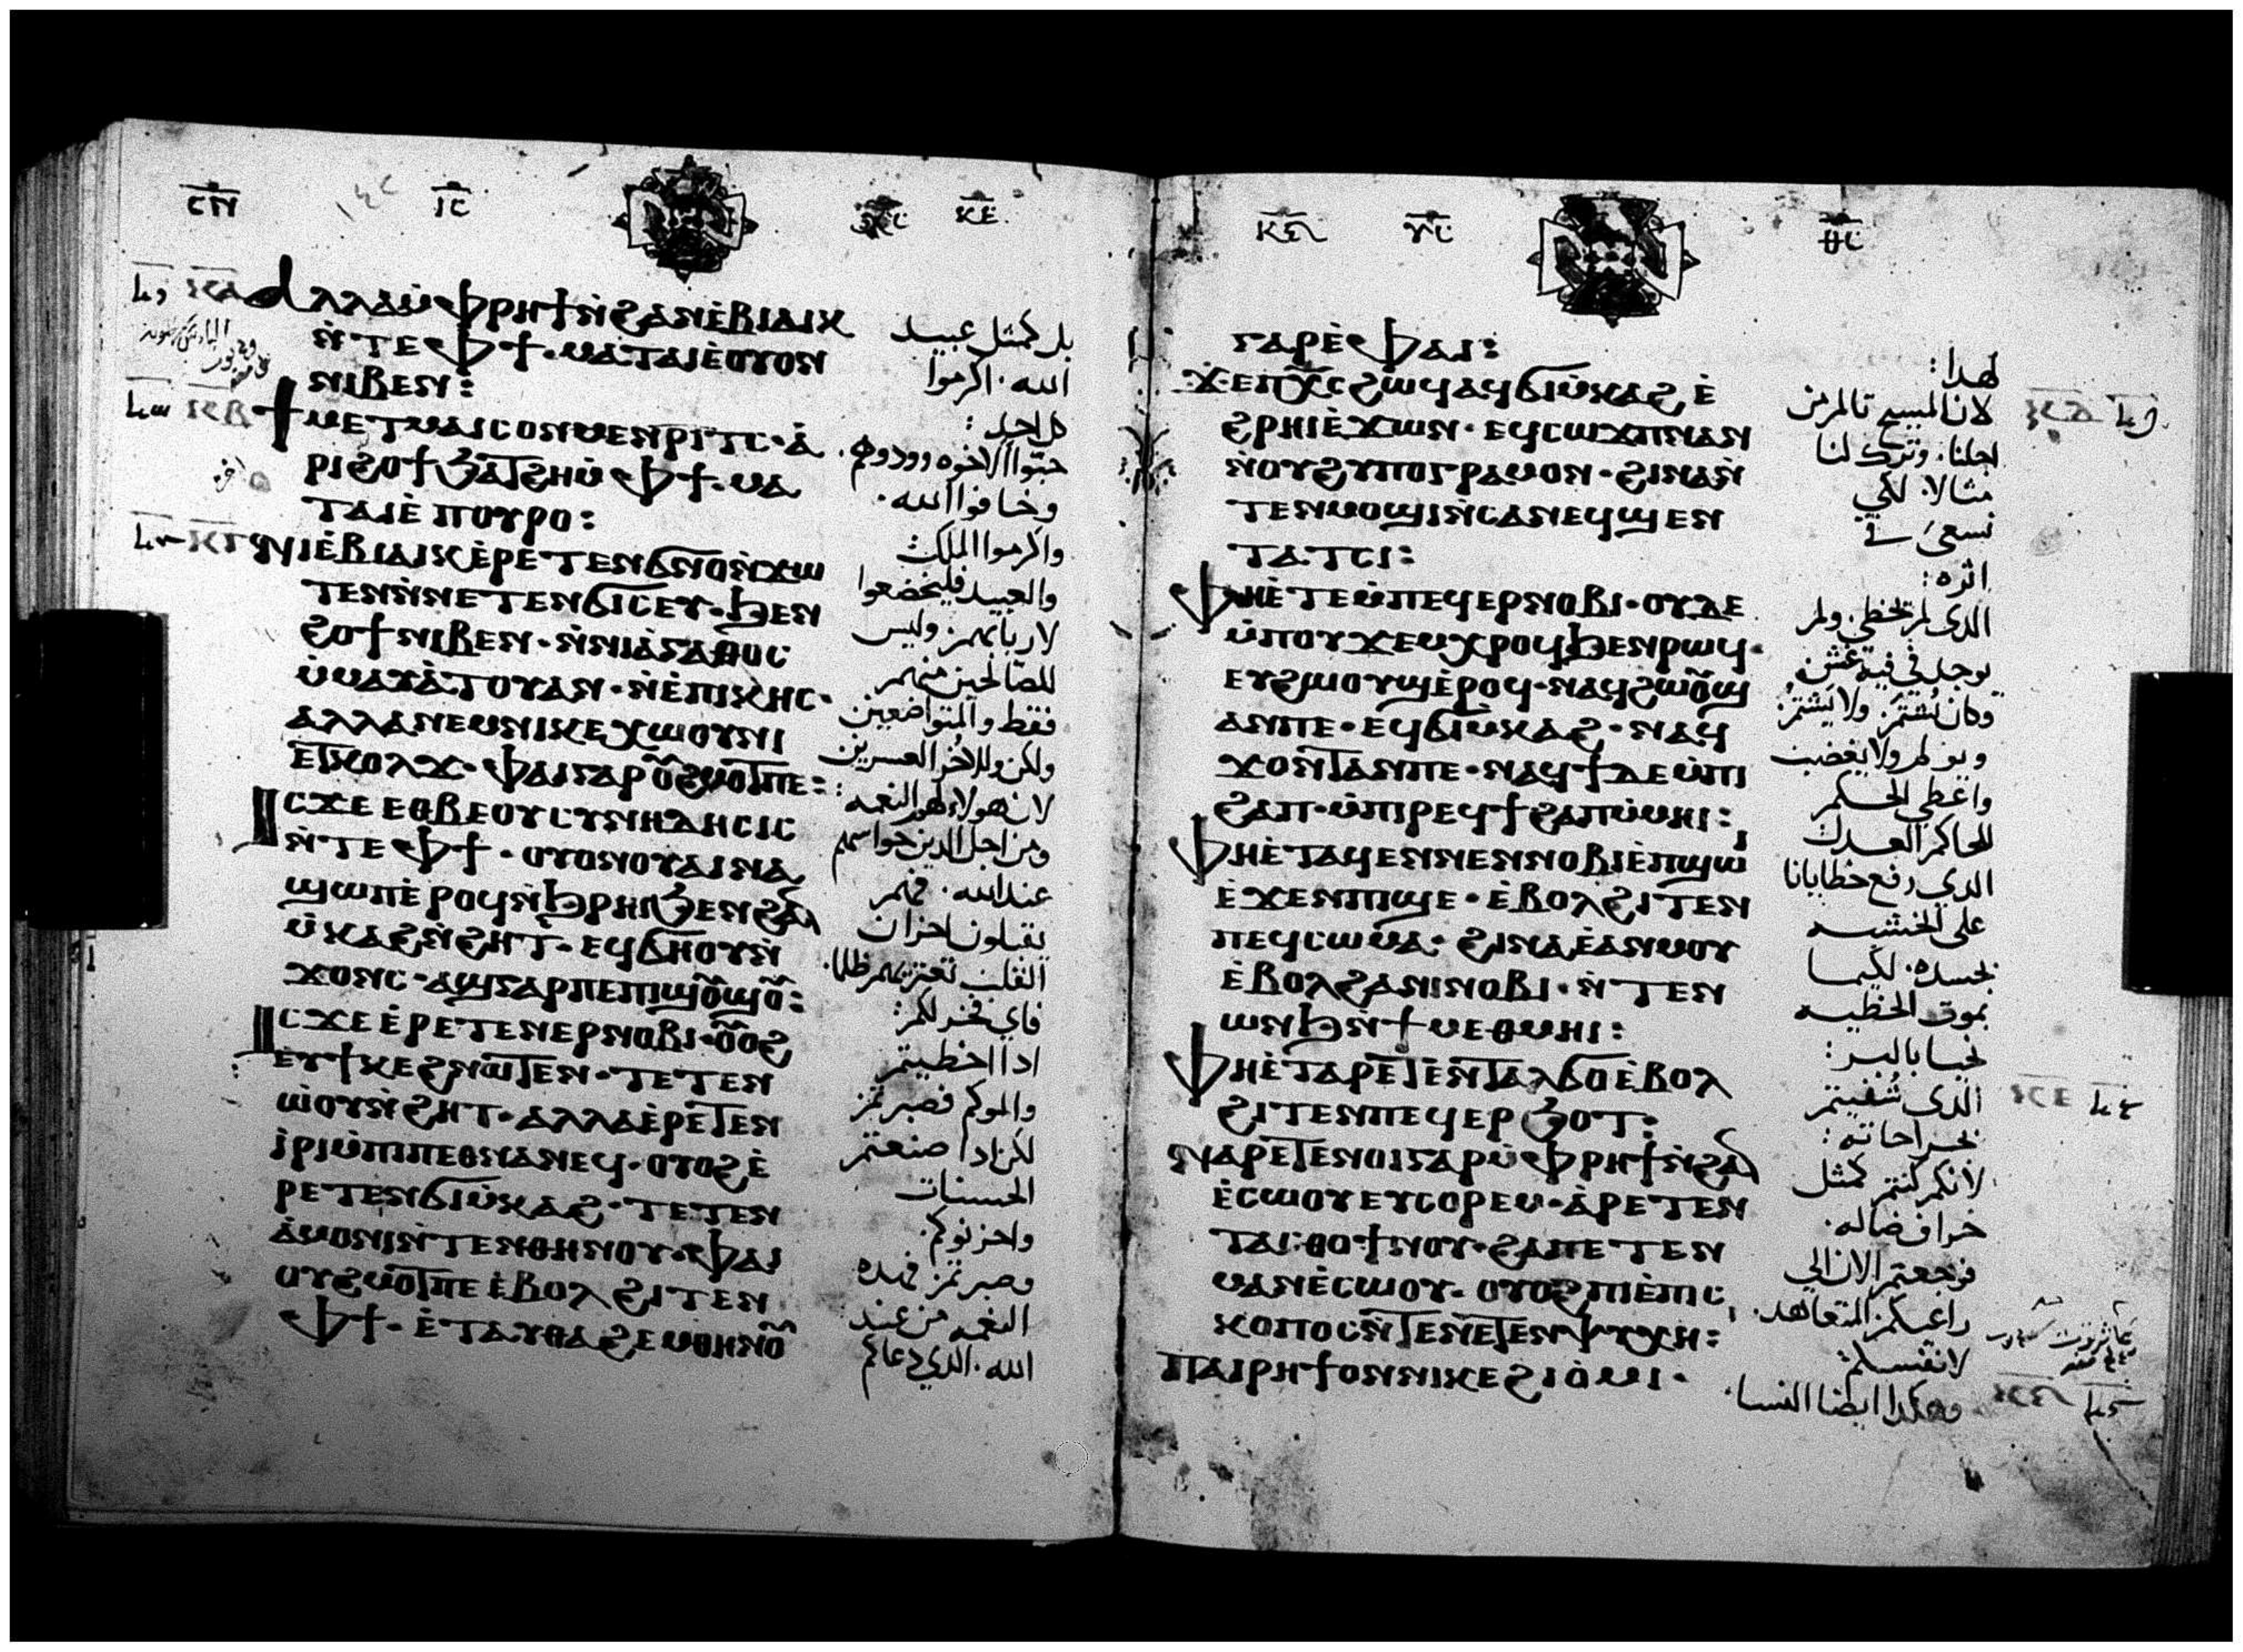 ⲁⲗⲗⲁ ⲙ̇ⲫⲣⲏϯ ⲛ̇ϩⲁⲛⲉ̇ⲃⲓⲁⲓⲕ
ⲛ̇ⲧⲉ ⲫϯ · ⲙⲁⲧⲁⲓⲉ ⲟⲩⲟⲛ
ⲛⲓⲃⲉⲛ :
ϯⲙⲉⲧⲙⲁⲓⲥⲟⲛ ⲙⲉⲛⲣⲓⲧⲥ · ⲁ̇
ⲣⲓϩⲟϯ ϧⲁⲧϩⲏ ⲙ̇ⲫϯ · ⲙⲁ
ⲧⲁⲓⲉ̇ ⲡⲟⲩⲣⲟ :
ⲛⲓⲉ̇ⲃⲓⲁⲓⲕ ⲉ̇ⲣⲉⲧⲉⲛϭⲛⲟ ⲛ̇ϫⲱ
ⲧⲉⲛ ⲛ̇ⲛⲉⲧⲉⲛϭⲓⲥⲉⲩ · ϧⲉⲛ
ϩⲟϯ ⲛⲓⲃⲉⲛ · ⲛ̇ⲛⲓⲁ̇ⲅⲁⲑⲟⲥ
ⲙ̇ⲙⲁⲩⲁ̇ⲧⲟⲩ ⲁⲛ · ⲛ̇ⲉ̇ⲡⲓⲕⲏⲥ ·
ⲁⲗⲗⲁ ⲛⲉⲙ ⲛⲓⲕⲉⲭⲱⲟⲩⲛⲓ
ⲉⲧⲕⲟⲗϫ · ⲫⲁⲓ ⲅⲁⲣ ⲟⲩϩⲙⲟⲧ ⲡⲉ :
ⲓⲥϫⲉ ⲉⲑⲃⲉ ⲟⲩⲥⲩⲛⲏⲇⲏⲥⲓⲥ
ⲛ̇ⲧⲉ ⲫϯ · ⲟⲩⲟⲛ ⲟⲩⲁⲓ ⲛⲁ
ϣⲱⲡ ⲉ̇ⲣⲟϥ ⲛ̇ϧⲣⲏⲓ ϧⲉⲛ ϩⲁⲛ
ⲙ̇ⲕⲁϩ ⲛ̇ϩⲏⲧ · ⲉϥϭⲏⲟⲩ ⲛ̇
ϫⲟⲛⲥ · ⲁϣ ⲅⲁⲣ ⲡⲉ ⲡⲓϣⲟⲩϣⲟⲩ :
ⲓⲥϫⲉ ⲉ̇ⲣⲉⲧⲉⲛⲉⲣⲛⲟⲃⲓ · ⲟⲩⲟϩ
ⲉⲩϯⲕⲉϩ ⲛⲱⲧⲉⲛ · ⲧⲉⲧⲉⲛ
ⲱ̇ⲟⲩⲛ̇ϩⲏⲧ · ⲁⲗⲗⲁ ⲉ̇ⲣⲉⲧⲉⲛ
ⲓ̇ⲣⲓ ⲙ̇ⲡⲓⲡⲉⲑⲛⲁⲛⲉϥ · ⲟⲩⲟϩ ⲉ̇
ⲣⲉⲧⲉⲛϭⲓⲙ̇ⲕⲁϩ · ⲧⲉⲧⲉⲛ
ⲁ̇ⲙⲟⲛⲓ ⲛ̇ⲧⲉⲛⲑⲏⲛⲟⲩ · ⲫⲁⲓ
ⲟⲩϩⲙⲟⲧ ⲡⲉ ⲉ̇ⲃⲟⲗ ϩⲓⲧⲉⲛ
ⲫϯ · ⲉ̇ⲧⲁⲩⲑⲁϩⲉⲙ ⲑⲏⲛⲟⲩ
بل كمثل عبيد
الله · اكرموا
كل احد :
حبّوا الاخوه وودوهم ·
وخافوا الله ·
واكرموا الملك :
والعبيد فليخضعوا
لاربابهم · وليس
للصالحين منهم
فقط والمتواضعين
ولكن وللاخر العسرين
لان هولاء لهو النعمه :
ومن اجل الدين حواسهم
عند الله · فهم
يقبلون احزان
القلب تعتريهم ظلما ·
فاي فخر لكم :
ادا اخطيتم
والموكم فصبرتم
لكن ادا صنعتم
الحسنات
واحزنوكم ·
وصبرتم فهده
النعمه من عند
الله · الدي دعاكم
ⲅⲁⲣ ⲉ̇ⲫⲁⲓ :
ϫⲉ ⲡⲭⲥ ϩⲱϥ ⲁϥϭⲓⲙ̇ⲕⲁϩ ⲉ̇
ϩⲣⲏⲓ ⲉ̇ϫⲱⲛ · ⲉϥⲥⲱϫⲡ ⲛⲁⲛ
ⲛ̇ⲟⲩϩⲩⲡⲟⲅⲣⲁⲙⲟⲛ · ϩⲓⲛⲁ ⲛ̇
ⲧⲉⲛⲙⲟϣⲓ ⲛ̇ⲥⲁ ⲛⲉϥϣⲉⲛ
ⲧⲁⲧⲥⲓ :
ⲫⲏ ⲉ̇ⲧⲉ ⲙ̇ⲡⲉϥⲉⲣⲛⲟⲃⲓ · ⲟⲩⲇⲉ
ⲙ̇ⲡⲟⲩϫⲉⲙ ⲭⲣⲟϥ ϧⲉⲛ ⲣⲱϥ ·
ⲉⲩϩⲱⲟⲩϣ ⲉ̇ⲣⲟϥ · ⲛⲁϥϩⲱⲟⲩϣ
ⲁⲛ ⲡⲉ · ⲉϥϭⲓⲙ̇ⲕⲁϩ · ⲛⲁϥ
ϫⲟⲛⲧ ⲁⲛ ⲡⲉ · ⲛⲁϥϯ ⲇⲉ ⲙ̇ⲡⲓ
ϩⲁⲡ · ⲙ̇ⲡⲓⲣⲉϥϯϩⲁⲡ ⲙ̇ⲙⲏⲓ :
ⲫⲏ ⲉ̇ⲧⲁϥⲉⲛ ⲛⲉⲛⲛⲟⲃⲓ ⲉ̇ⲡϣⲱⲓ
ⲉ̇ϫⲉⲛ ⲡⲓϣⲉ · ⲉ̇ⲃⲟⲗ ϩⲓⲧⲉⲛ
ⲡⲉϥⲥⲱⲙⲁ · ϩⲓⲛⲁ ⲉ̇ⲁⲛⲙⲟⲩ
ⲉ̇ⲃⲟⲗ ϩⲁ ⲛⲓⲛⲟⲃⲓ · ⲛ̇ⲧⲉⲛ
ⲱⲛϧ ⲛ̇ϯⲙⲉⲑⲙⲏⲓ :
ⲫⲏ ⲉ̇ⲧⲁⲣⲉⲧⲉⲛⲧⲁⲗϭⲟ ⲉ̇ⲃⲟⲗ
ϩⲓⲧⲉⲛ ⲡⲉϥⲉⲣϧⲟⲧ :
ⲛⲁⲣⲉⲧⲉⲛⲟⲓ ⲅⲁⲣ ⲙ̇ⲫⲣⲏϯ ⲛ̇ϩⲁⲛ
ⲉ̇ⲥⲱⲟⲩ ⲉⲩⲥⲟⲣⲉⲙ · ⲁ̇ⲣⲉⲧⲉⲛ
ⲧⲁⲥⲑⲟ ϯⲛⲟⲩ · ϩⲁ ⲡⲉⲧⲉⲛ
ⲙⲁⲛⲉ̇ⲥⲱⲟⲩ · ⲟⲩⲟϩ ⲡⲓⲉ̇ⲡⲓⲥ
ⲕⲟⲡⲟⲥ ⲛ̇ⲧⲉ ⲛⲉⲧⲉⲛⲯⲩⲭⲏ :
ⲡⲁⲓⲣⲏϯ ⲟⲛ ⲛⲓⲕⲉϩⲓⲟ̇ⲙⲓ ·
لهدا :
لان المسيح تالم من
اجلنا · وترك لنا
مثالا · لكي
نسعى في
اثره :
الدى لم يخطي · ولم
يوجد في فيه غش
وكان يُشتم · ولا يَشتم :
ويولم ولا يغضب
واعطى الحكم
للحاكم العدل
الدي رفع خطايانا
على الخشبه
بجسده · لكيما
بموت الخطيه
نحيا بالبر :
الدى شُفيتم
بجراحاته :
لانكم كنتم كمثل
خراف ضاله ·
فرجعتم الان الي
راعيكم المتعاهد ·
لانفسكم :
وهكدا ايضا النسا ·